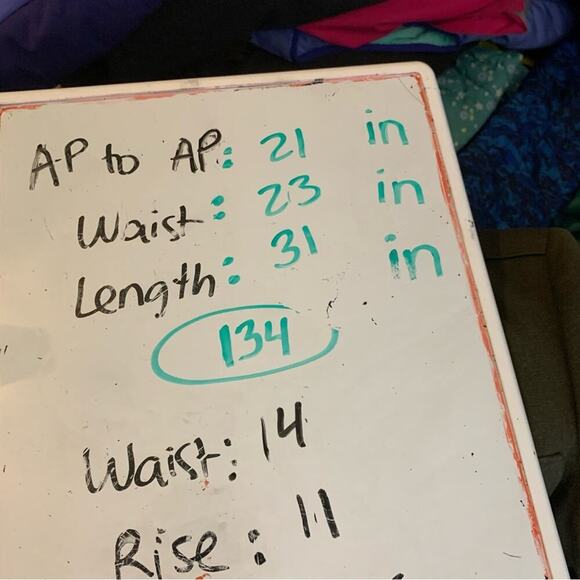 AP to AP: 21 in
Waist: 23 in
Length: 31 in
134
Waist: 14
Rise: 11